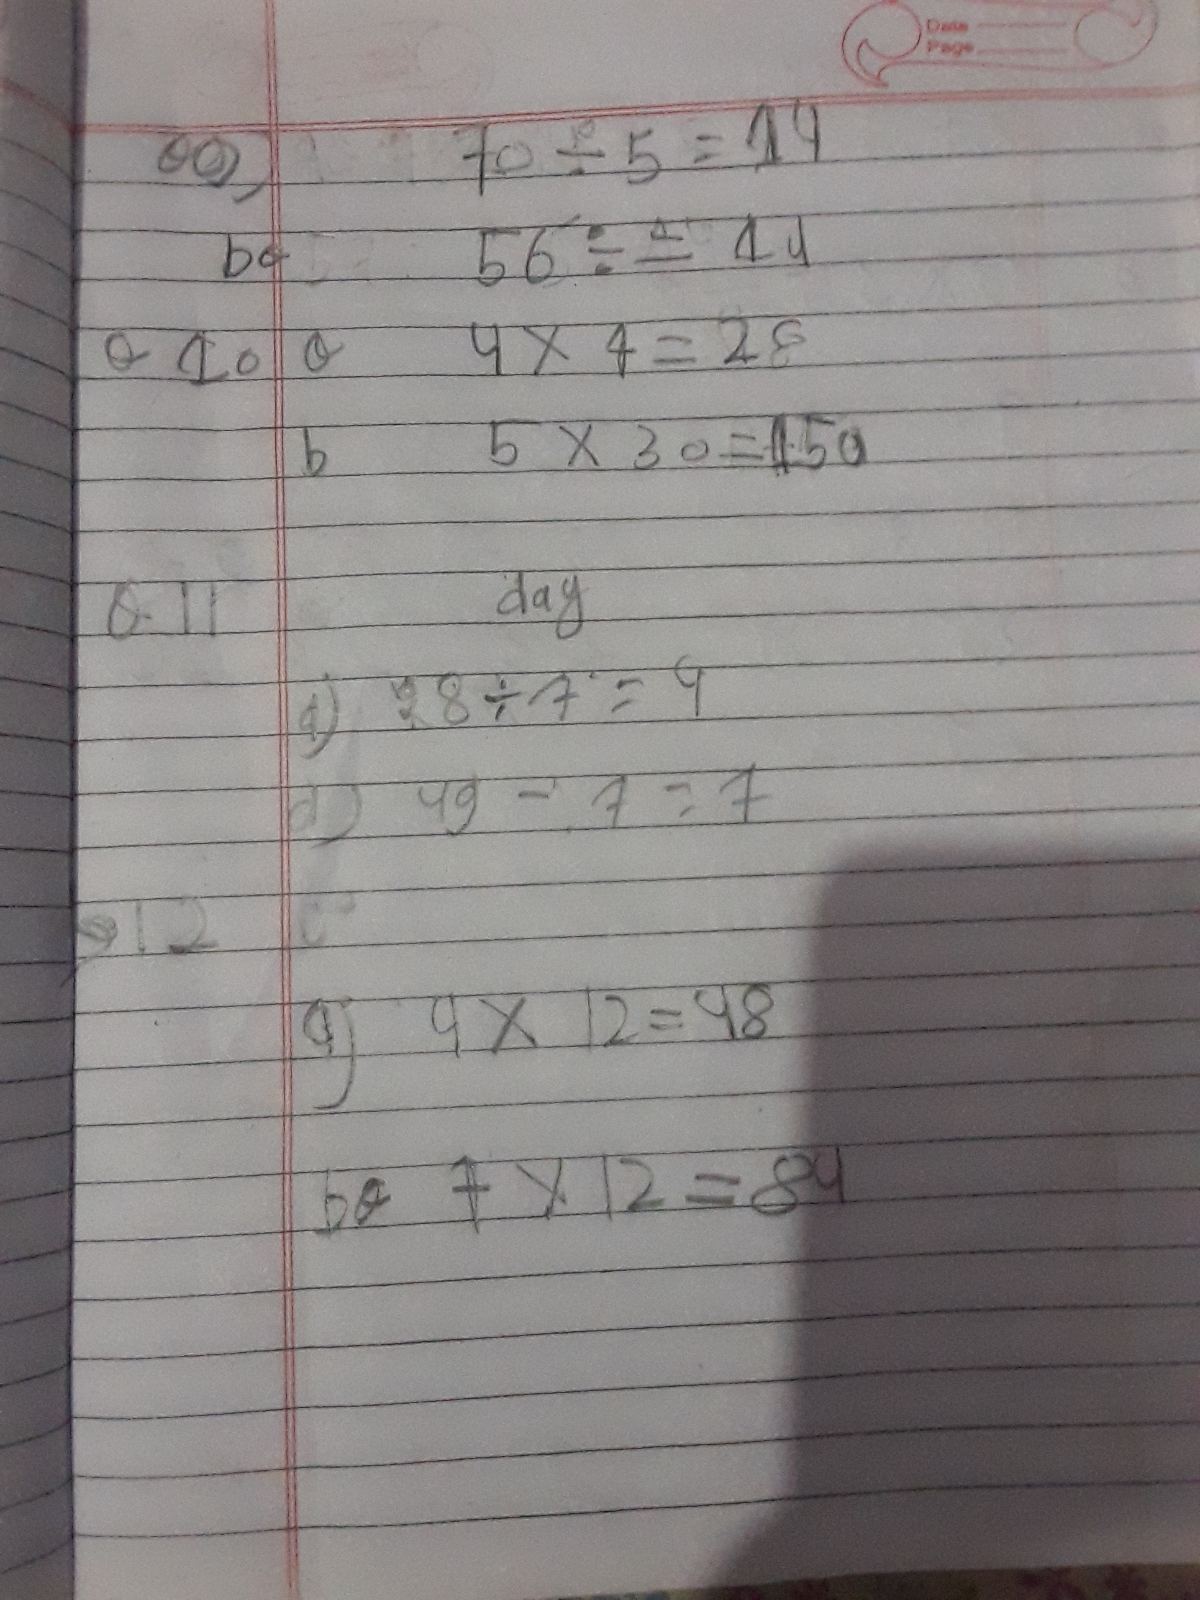 Date
Page
70 ÷ 5 = 14
b 56 ÷ 4 = 14
Q 10 a 4 × 7 = 28
b 5 × 30 = 150
Q. 11 day
a) 28 ÷ 7 = 4
49 - 7 = 7
12
a) 4 × 12 = 48
b 7 × 12 = 84